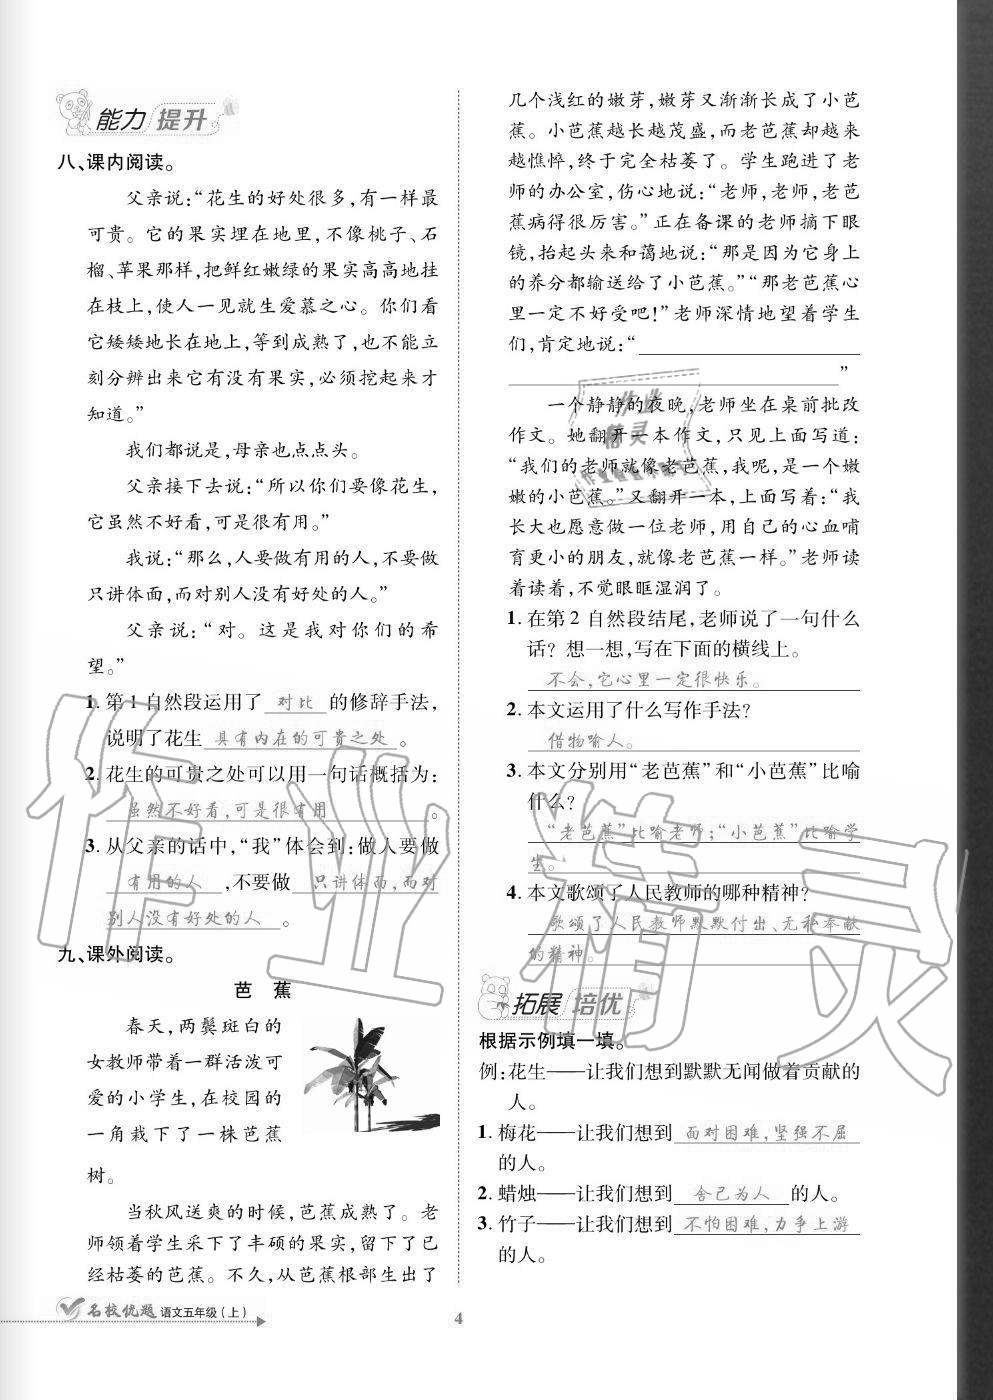 能力 提升
八、课内阅读。
父亲说:“花生的好处很多,有一样最
可贵。它的果实埋在地里,不像桃子、石
榴、苹果那样,把鲜红嫩绿的果实高高地挂
在枝上,使人一见就生爱慕之心。你们看
它矮矮地长在地上,等到成熟了,也不能立
刻分辨出来它有没有果实,必须挖起来才
知道。”
我们都说是,母亲也点点头。
父亲接下去说:“所以你们要像花生,
它虽然不好看,可是很有用。”
我说:“那么,人要做有用的人,不要做
只讲体面,而对别人没有好处的人。”
父亲说:“对。这是我对你们的希
望。”
1. 第1自然段运用了 对比 的修辞手法,
说明了花生 具有内在的可贵之处 。
2. 花生的可贵之处可以用一句话概括为:
虽然不好看,可是很有用 。
3. 从父亲的话中,“我”体会到:做人要做
有用的人 ,不要做 只讲体面,而对
别人没有好处的人 。
九、课外阅读。
芭 蕉
春天,两鬓斑白的
女教师带着一群活泼可
爱的小学生,在校园的
一角栽下了一株芭蕉
树。
当秋风送爽的时候,芭蕉成熟了。老
师领着学生采下了丰硕的果实,留下了已
经枯萎的芭蕉。不久,从芭蕉根部生出了
几个浅红的嫩芽,嫩芽又渐渐长成了小芭
蕉。小芭蕉越长越茂盛,而老芭蕉却越来
越憔悴,终于完全枯萎了。学生跑进了老
师的办公室,伤心地说:“老师,老师,老芭
蕉病得很厉害。”正在备课的老师摘下眼
镜,抬起头来和蔼地说:“那是因为它身上
的养分都输送给了小芭蕉。”“那老芭蕉心
里一定不好受吧!”老师深情地望着学生
们,肯定地说:“
”
一个静静的夜晚,老师坐在桌前批改
作文。她翻开一本作文,只见上面写道:
“我们的老师就像老芭蕉,我呢,是一个嫩
嫩的小芭蕉。”又翻开一本,上面写着:“我
长大也愿意做一位老师,用自己的心血哺
育更小的朋友,就像老芭蕉一样。”老师读
着读着,不觉眼眶湿润了。
1. 在第2自然段结尾,老师说了一句什么
话? 想一想,写在下面的横线上。
不会,它心里一定很快乐。
2. 本文运用了什么写作手法?
借物喻人。
3. 本文分别用“老芭蕉”和“小芭蕉”比喻
什么?
“老芭蕉”比喻老师;“小芭蕉”比喻学
生。
4. 本文歌颂了人民教师的哪种精神?
歌颂了人民教师默默付出、无私奉献
的精神。
拓展 培优
根据示例填一填。
例:花生——让我们想到默默无闻做着贡献的
人。
1. 梅花——让我们想到 面对困难,坚强不屈
的人。
2. 蜡烛——让我们想到 舍己为人 的人。
3. 竹子——让我们想到 不怕困难,力争上游
的人。
名校优题 语文五年级(上)
4
作业精灵
作业
精灵